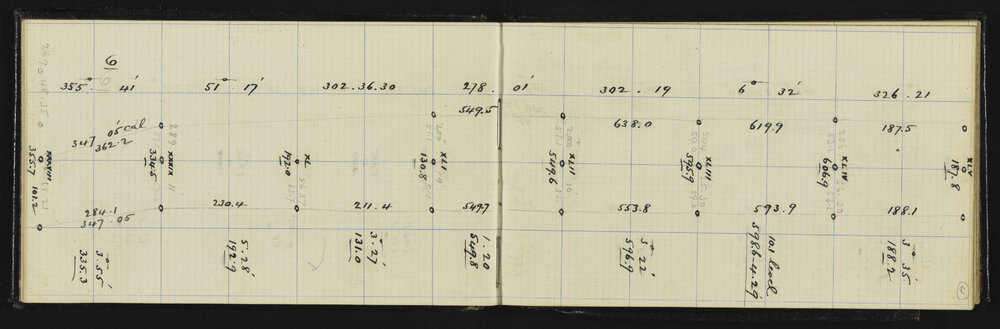 6
355° 41' 51° 17' 302.36.30 278. 01' 302. 19 6° 32' 326.21
549.5
05' cal 638.0 619.9 187.5
347
362.2
XXXVIII
355.7
101.2
XXXIX
334.5
XL
192.0
XLI
130.8
XLII
549.6
XLIII
595.9
XLIV
606.9
XLV
187.8
284.1 230.4 211.4 549.7 553.8 593.9 188.1
347.05
3.55'
335.3
5.28'
192.9
3.27'
131.0
1.20
549.8
3° 22'
596.9
101 level
598.6-4.29
3° 35'
188.2